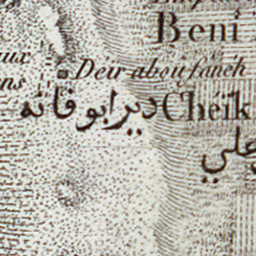 Beni
aux
Deir abou fâneh
ns
ديرابوفانه Cheïk
علي